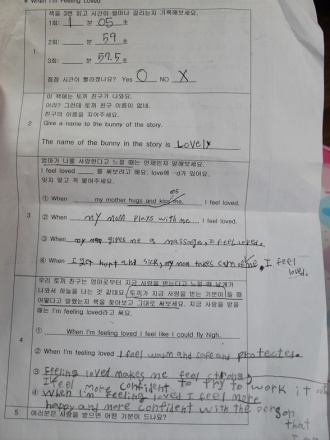 # When I'm Feeling Loved
책을 3번 읽고 시간이 얼마나 걸리는지 기록해보세요.
1회: 1 분 05 초
1
2회: 분 59 초
3회: 분 57.5 초
점점 시간이 빨라졌나요? Yes O NO X
이 책에는 토끼 친구가 나와요.
어라? 그런데 토끼 친구 이름이 없네.
친구의 이름을 지어주세요.
2
Give a name to the bunny of the story.
The name of the bunny in the story is Lovely
엄마가 나를 사랑한다고 느낄 때는 언제인지 말해보세요.
I feel loved 를 써보려고 해요. love에 -d가 있어요.
잊지 말고 꼭 붙여주세요.
① When my mother hugs and kiss me, I feel loved.
3
② When my mom plays with me I feel loved.
③ When my mom gives me a massage, I feel loved.
④ When I get hurt and sick, my mom takes care of me, I feel
loved.
우리 토끼 친구는 엄마로부터 지금 사랑을 받는다고 느낄 때 날개가
나와서 하늘을 나는 것 같대요. 토끼가 지금 사랑을 받는 기분이 들 때
어떻다고 말했는지 책을 찾아보고 그대로 써보세요. 지금 사랑을 받을
때는 I'm feeling loved라고 써요.
① When I'm feeling loved I feel like I could fly high.
4
② When I'm feeling loved I feel warm and safe and protected.
③ Feeling loved makes me feel strong,
I feel more confident to try to work it
④ When I'm feeling loved I feel more
happy and more confident with the person
that
5 여러분은 사랑을 받으면 어떤 기분이 드나요?
I am